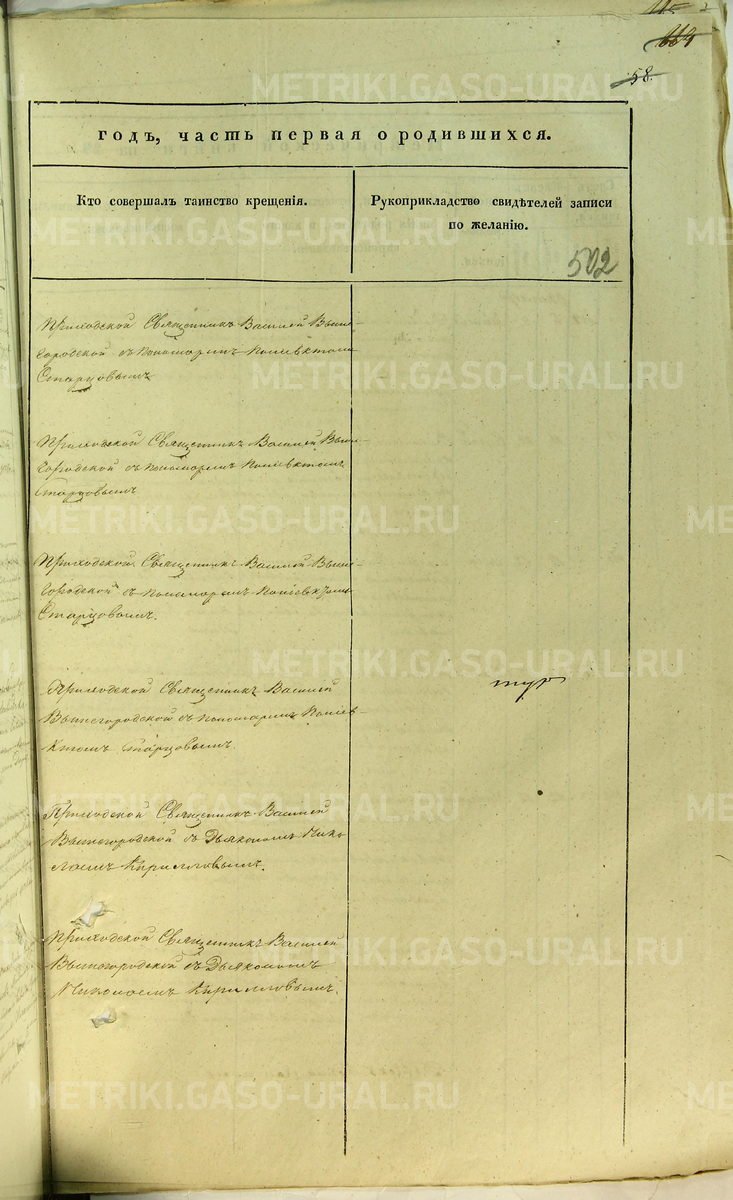 58.
годъ, часть первая о родившихся.
Кто совершалъ таинство крещенія.
Рукоприкладство свидѣтелей записи
по желанію.
502
Приходской Священникъ Василей Выше-
городской съ Пономаремъ Поліевктомъ
Старцовымъ
Приходской Священникъ Василей Выше-
городской съ Пономаремъ Поліевктомъ
Старцовымъ
Приходской Священникъ Василей Выше-
городской съ Пономаремъ Поліевктомъ
Старцовымъ.
Приходской Священникъ Василей
Вышегородской съ Пономаремъ Поліев-
ктомъ Старцовымъ.
Приходской Священникъ Василей
Вышегородской съ Дьякономъ Нико
лаемъ Кирилловымъ.
Приходской Священникъ Василей
Вышегородской съ Дьякономъ
Николаемъ Кирилловымъ.
METRIKI.GASO-URAL.RU